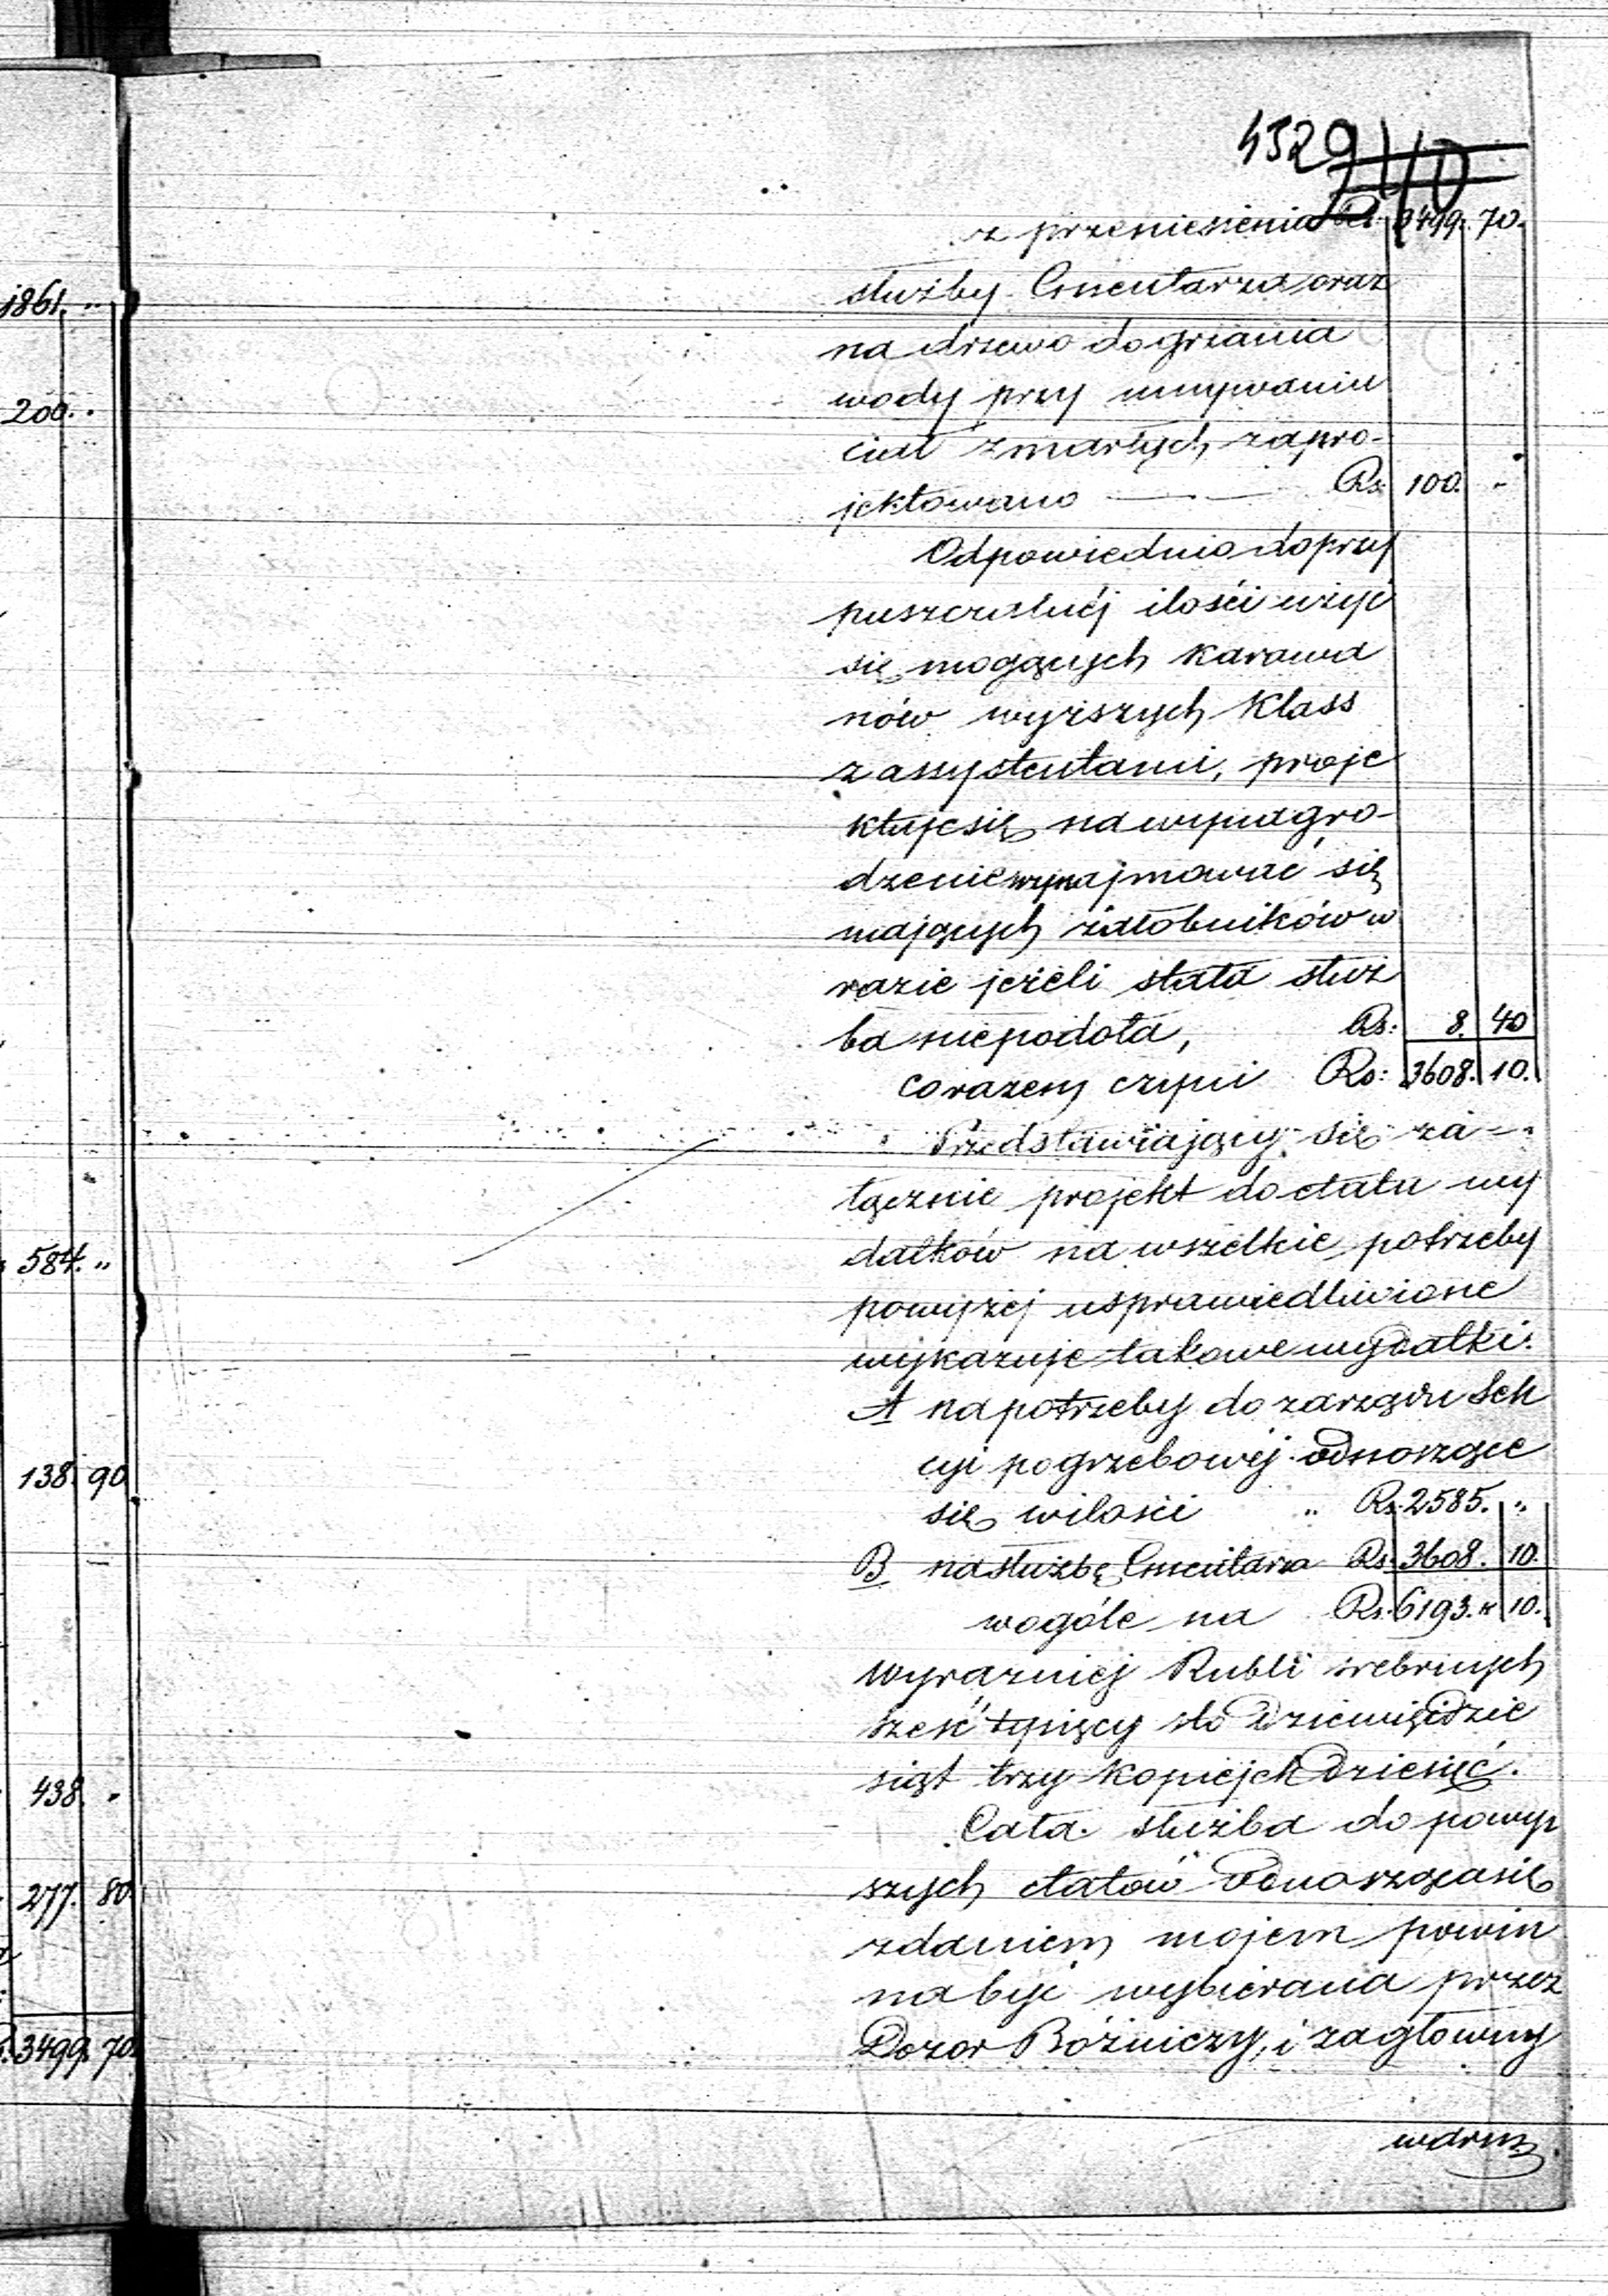 4529
z przeniesienia Rs. 3499. 70.
służby Cmentarza oraz
na drzewo do grzania
wody przy umywaniu
ciał zmarłych, zapro-
jektowano — — Rs. 100. -
Odpowiednio do przy
puszczalnéj ilości użyć
się mogących karawa
nów wyższych klass
z assystentami, proje
ktuje się na wynagro-
dzenie wynajmować się
mających żałobników w
razie jeżeli stała służ
ba niepodoła, Rs: 8. 40
co razem czyni Rs: 3608. 10.
Przedstawiający się za-
łącznie projekt do etatu wy
datków na wszelkie potrzeby
powyżej usprawiedliwione
wykazuje takowe wydatki.
A na potrzeby do zarządu Sek
cyi pogrzebowéj odnoszące
się wilości „ Rs. 2585. „
B na służbę Cmentarza Rs. 3608. 10.
wogóle na Rs. 6193. k 10.
wyrazniej Rubli srebrnych
sześć tysięcy sto dziewięćdzie
siąt trzy kopiejek dziesięć.
Cała służba do powyż
szych etatów odnosząca się
zdaniem mojem powin
na być wybierana przez
Dozor Bóżniczy, i za główny
1861. „
200. „
584. „
138. 90
438. „
277. 80
3499. 70.